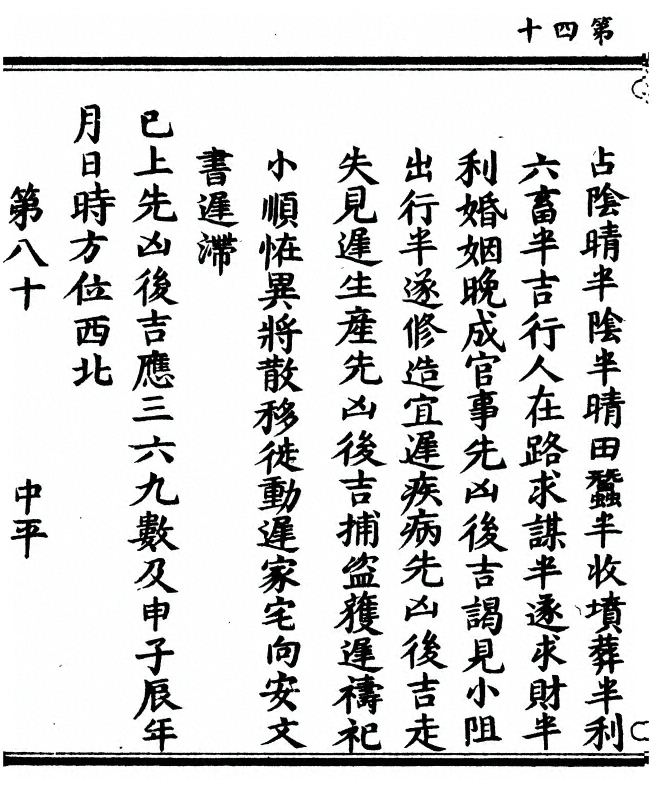 第四十
占陰晴半陰半晴田蠶半收墳葬半利
六畜半吉行人在路求謀半遂求財半
利婚姻晚成官事先凶後吉謁見小阻
出行半遂修造宜遲疾病先凶後吉走
失見遲生產先凶後吉捕盜獲遲禱祀
小順恠異將散移徙動遲家宅向安文
書遲滯
已上先凶後吉應三六九數及申子辰年
月日時方位西北
第八十 中平